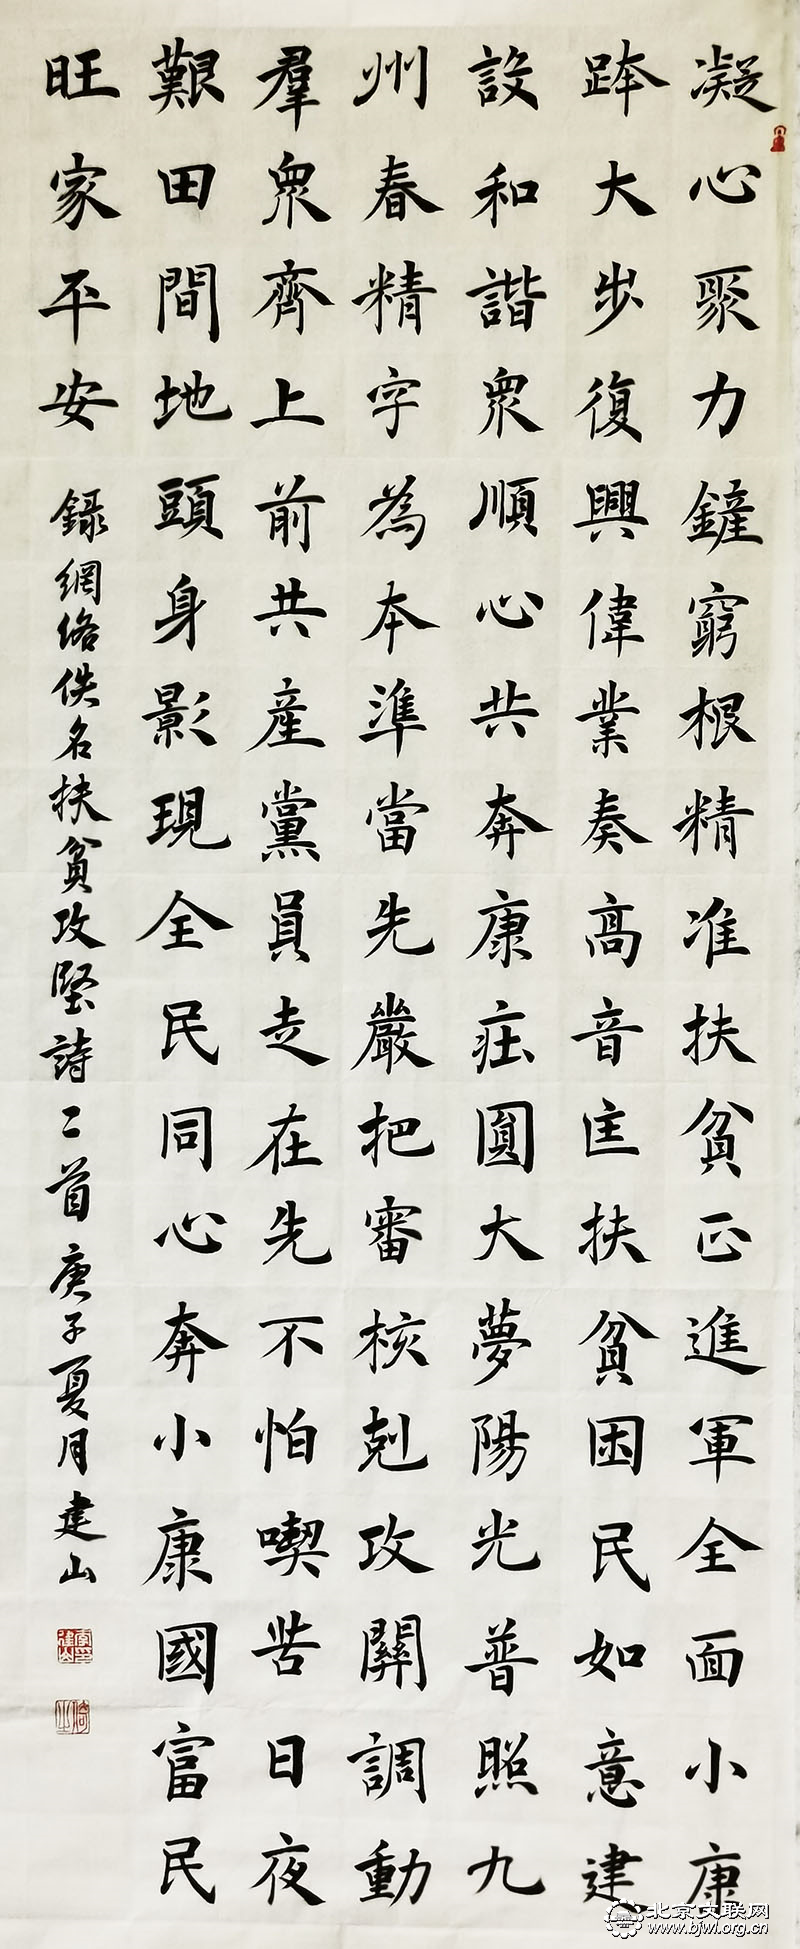 凝心聚力鏟窮根精准扶貧正進軍全面小康
跨大步復興偉業奏高音匡扶貧困民如意建
設和諧衆順心共奔康莊圓大夢陽光普照九
州春精字為本準當先嚴把審核剋攻關調動
羣衆齊上前共產黨員走在先不怕喫苦日夜
艱田間地頭身影現全民同心奔小康國富民
旺家平安
錄網络佚名扶貧攻堅詩二首庚子夏月建山
北京文联网
www.bjwl.org.cn